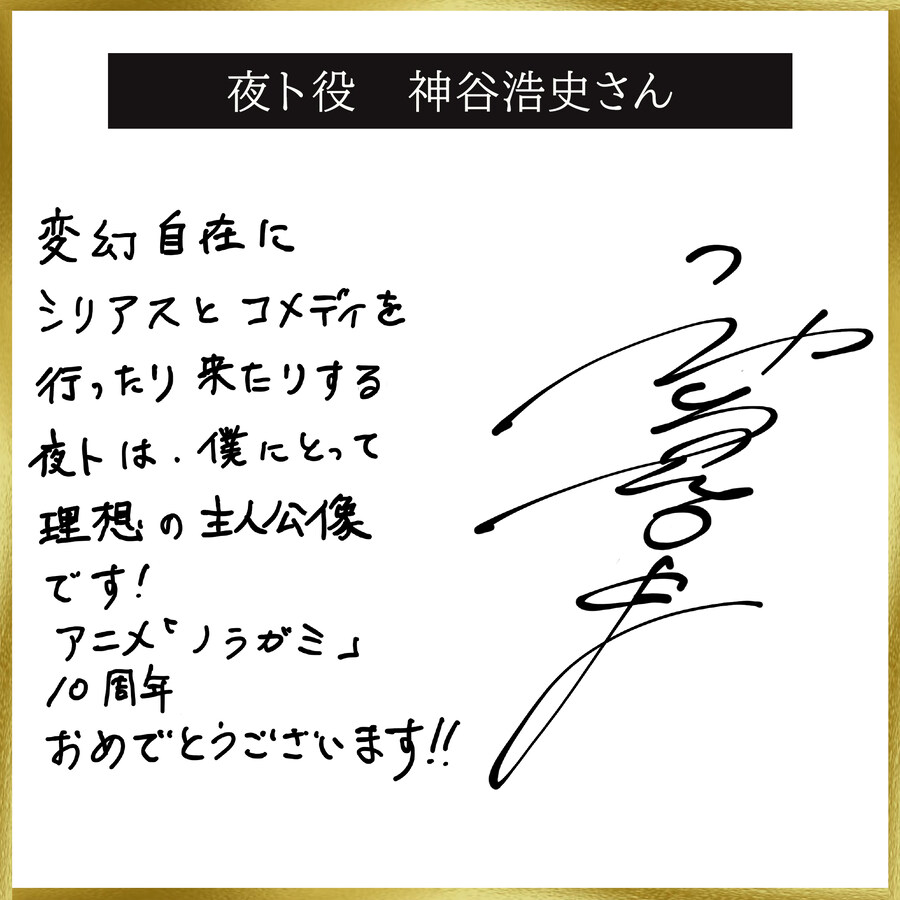 夜ト役　神谷浩史さん
変幻自在に
シリアスとコメディを
行ったり来たりする
夜トは、僕にとって
理想の主人公像
です!
アニメ「ノラガミ」
10周年
おめでとうございます!!